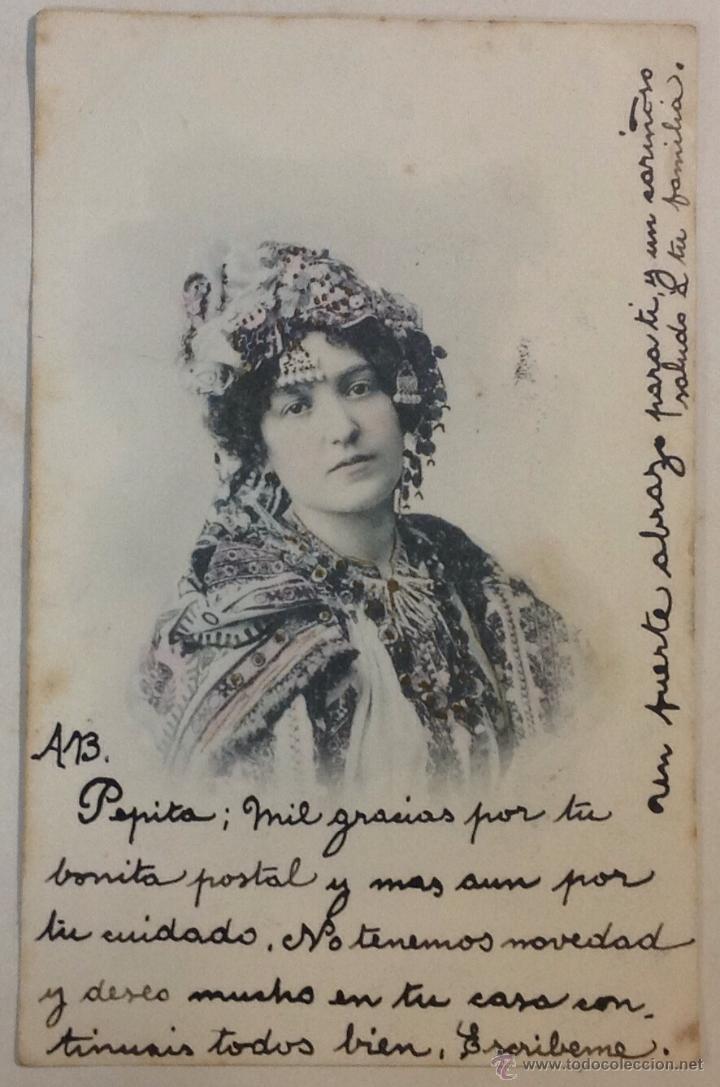 AB.
Pepita; Mil gracias por tu
bonita postal y mas aun por
tu cuidado. No tenemos novedad
y deseo mucho en tu casa con-
tinuais todos bien. Escribeme.
un fuerte abrazo para ti, y un cariñoso
saludo a tu familia.
© www.todocoleccion.net